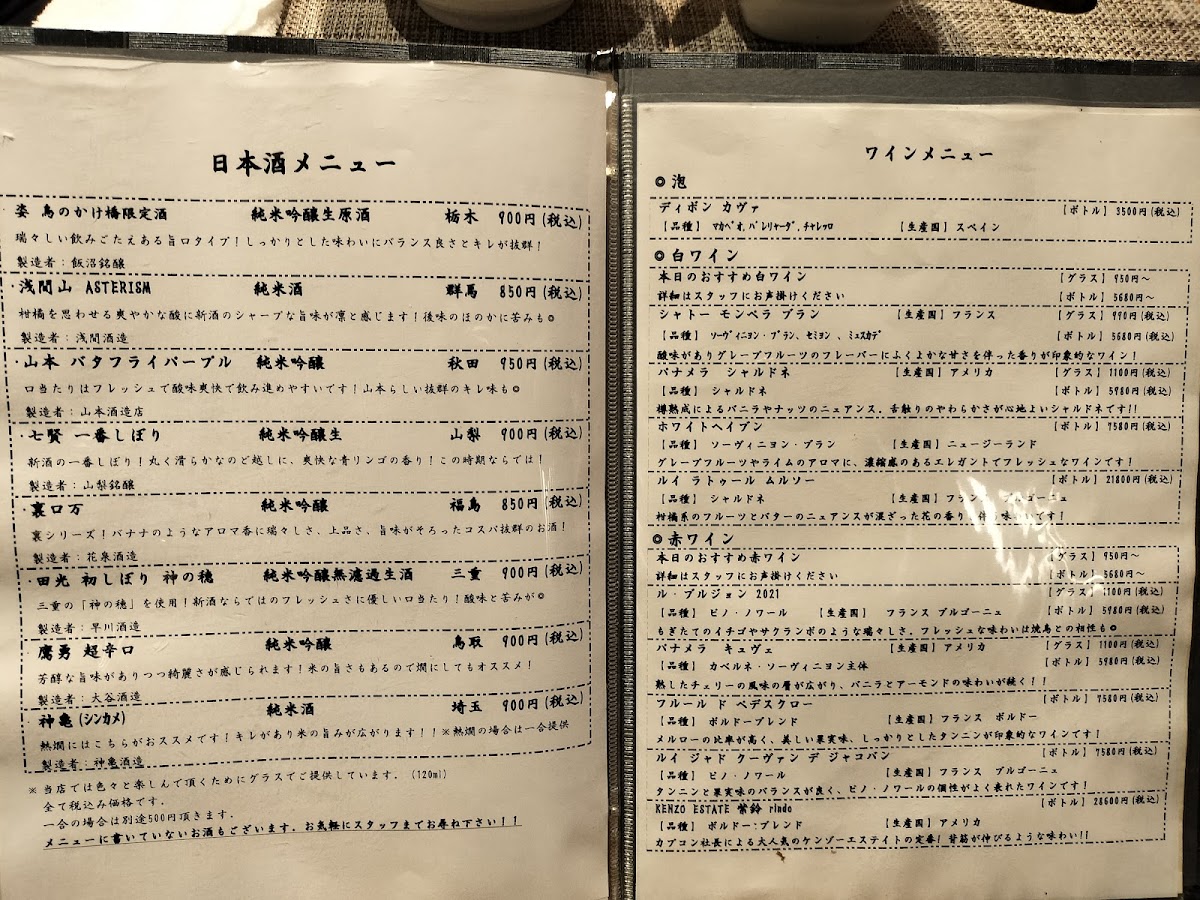 日本酒メニュー
・姿 鳥のかけ橋限定酒 純米吟醸生原酒 栃木 900円(税込)
瑞々しい飲みごたえある旨口タイプ!しっかりとした味わいにバランス良さとキレが抜群!
製造者:飯沼銘醸
・浅間山 ASTERISM 純米酒 群馬 850円(税込)
柑橘を思わせる爽やかな酸に新酒のシャープな旨味が凛と感じます!後味のほのかに苦みも◎
製造者:浅間酒造
・山本 バタフライパープル 純米吟醸 秋田 950円(税込)
口当たりはフレッシュで酸味爽快で飲み進めやすいです!山本らしい抜群のキレ味も◎
製造者:山本酒造店
・七賢 一番しぼり 純米吟醸生 山梨 900円(税込)
新酒の一番しぼり!丸く滑らかなのど越しに、爽快な青リンゴの香り!この時期ならでは!
製造者:山梨銘醸
・裏ロ万 純米吟醸 福島 850円(税込)
裏シリーズ!バナナのようなアロマ香に瑞々しさ、上品さ、旨味がそろったコスパ抜群のお酒!
製造者:花泉酒造
・田光 初しぼり 神の穂 純米吟醸無濾過生酒 三重 900円(税込)
三重の「神の穂」を使用!新酒ならではのフレッシュさに優しい口当たり!酸味と苦みが◎
製造者:早川酒造
鷹勇 超辛口 純米吟醸 鳥取 900円(税込)
芳醇な旨味がありつつ綺麗さが感じられます!米の旨さもあるので燗にしてもオススメ!
製造者:大谷酒造
・神亀(シンカメ) 純米酒 埼玉 900円(税込)
熱燗にはこちらがおススメです!キレがあり米の旨みが広がります!!※熱燗の場合は一合提供
製造者:神亀酒造
※当店では色々と楽しんで頂くためにグラスでご提供しています。(120ml)
全て税込み価格です。
一合の場合は別途500円頂きます。
メニューに書いていないお酒もございます。お気軽にスタッフまでお尋ね下さい!!
ワインメニュー
◎泡
ディボン カヴァ 【ボトル】3500円(税込)
【品種】 マカベオ,パレリャーダ,チャレッロ 【生産国】スペイン
◎白ワイン
本日のおすすめ白ワイン 【グラス】950円~
詳細はスタッフにお声掛けください 【ボトル】5680円~
シャトー モンペラ ブラン 【生産国】フランス 【グラス】990円(税込)
【品種】 ソーヴィニヨン・ブラン,セミヨン 、ミュスカデ 【ボトル】5680円(税込)
酸味がありグレープフルーツのフレーバーにふくよかな甘さを伴った香りが印象的なワイン!
パナメラ シャルドネ 【生産国】アメリカ 【グラス】1100円(税込)
【品種】 シャルドネ 【ボトル】5980円(税込)
樽熟成によるバニラやナッツのニュアンス。舌触りのやわらかさが心地よいシャルドネです!!
ホワイトヘイブン 【ボトル】7580円(税込)
【品種】 ソーヴィニヨン・ブラン 【生産国】ニュージーランド
グレープフルーツやライムのアロマに、濃縮感のあるエレガントでフレッシュなワインです!
ルイ ラトゥール ムルソー 【ボトル】21800円(税込)
【品種】 シャルドネ 【生産国】フランス ブルゴーニュ
柑橘系のフルーツとバターのニュアンスが混ざった花の香り 伴う味わいです!
◎赤ワイン
本日のおすすめ赤ワイン 【グラス】950円~
詳細はスタッフにお声掛けください 【ボトル】5680円~
ル・ブルジョン 2021 【グラス】1100円(税込)
【品種】 ピノ・ノワール 【生産国】 フランス ブルゴーニュ 【ボトル】5980円(税込)
もぎたてのイチゴやサクランボのような瑞々しさ。フレッシュな味わいは焼鳥との相性も◎
パナメラ キュヴェ 【生産国】アメリカ 【グラス】1100円(税込)
【品種】 カベルネ・ソーヴィニヨン主体 【ボトル】5980円(税込)
熟したチェリーの風味の層が広がり、バニラとアーモンドの味わいが続く!!
フルール ド ペデスクロー 【ボトル】7580円(税込)
【品種】 ボルドーブレンド 【生産国】フランス ボルドー
メルローの比率が高く、美しい果実味、しっかりとしたタンニンが印象的なワインです!
ルイ ジャド クーヴァン デ ジャコバン 【ボトル】7580円(税込)
【品種】 ピノ・ノワール 【生産国】フランス ブルゴーニュ
タンニンと果実味のバランスが良く、ピノ・ノワールの個性がよく表れたワインです!
KENZO ESTATE 紫鈴 rindo 【ボトル】28600円(税込)
【品種】 ボルドー:ブレンド 【生産国】アメリカ
カプコン社長による大人気のケンゾーエステイトの定番!背筋が伸びるような味わい!!